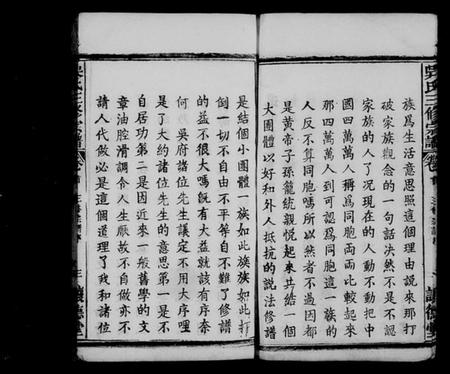 族爲生活意思照這個理由說來那打
破家族觀念的一句話決然不是不認
家族的人了况現在的人動不動把中
國四萬萬人稱爲同胞兩兩比較起來
那四萬萬人到可認爲同胞這一族的
人反不算同胞嗎所以然者不過因都
是黃帝子孫籠統親悅起來共結一個
大團體以好和外人抵抗的說法修譜
是結個小團體一族如此族族如此打
倒一切不自由不平等自不難了修譜
的益不很大嗎旣有大益就該有序奈
何吳府諸位先生議定不用大序哩
是了大約諸位先生的意思第一是不
自居功第二是因近來一般舊學的文
章油腔滑調令人生厭故不自做亦不
請人代做必是這個道理了我和諸位